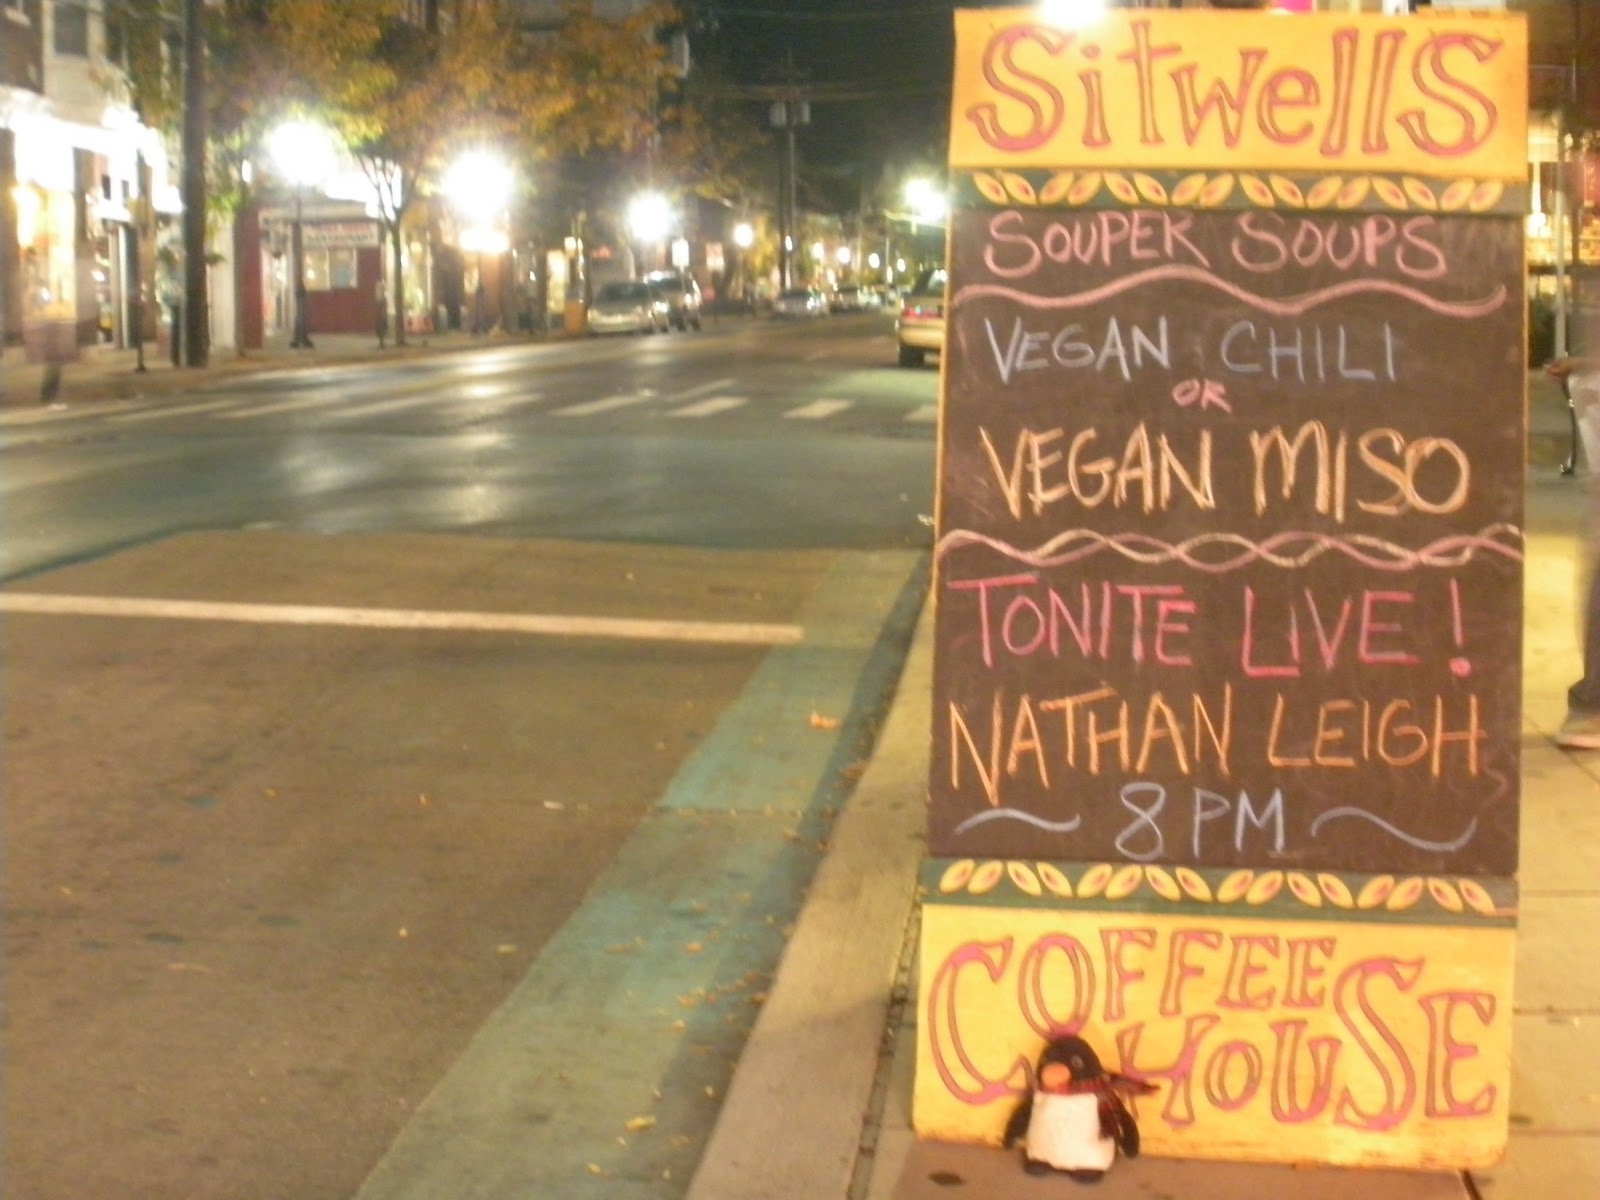 Sitwells
SOUPER SOUPS
VEGAN CHILI
OR
VEGAN MISO
TONITE LIVE!
NATHAN LEIGH
~ 8 PM ~
COFFEE
HOUSE